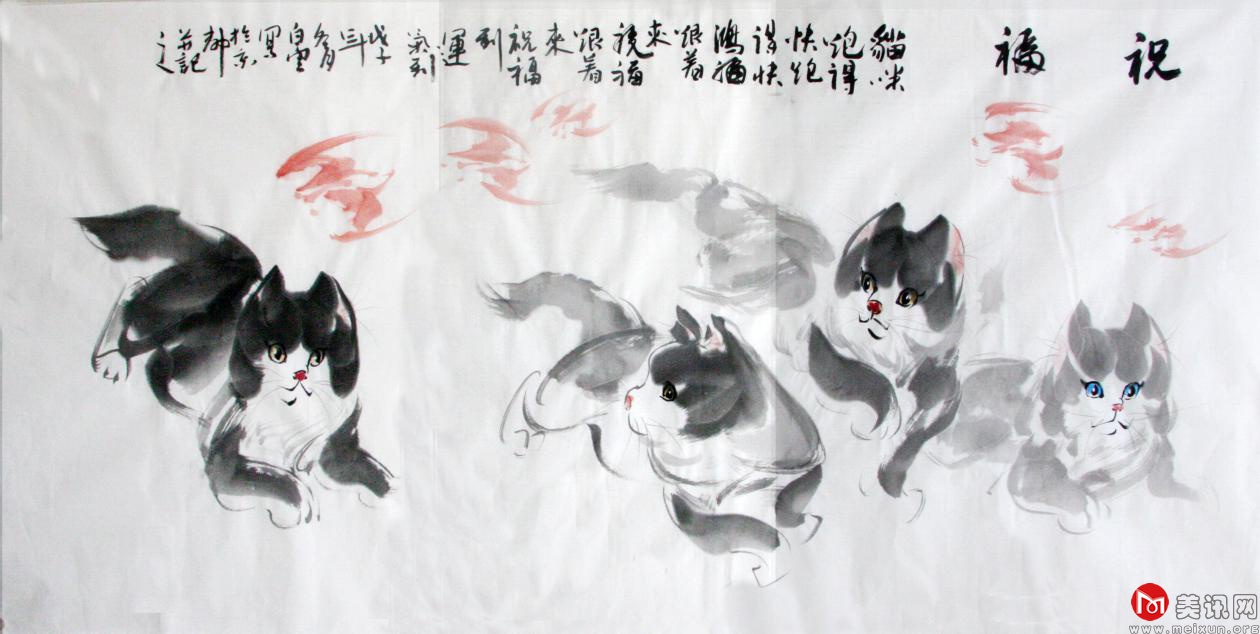 祝
福
貓咪
跑得
快跑
得快
鴻福
跟着
来
福
跟着
來
祝福
到
運
氣到
戊子
年
冬月
寫
於京
都
並記
之
美讯网
www.meixun.org